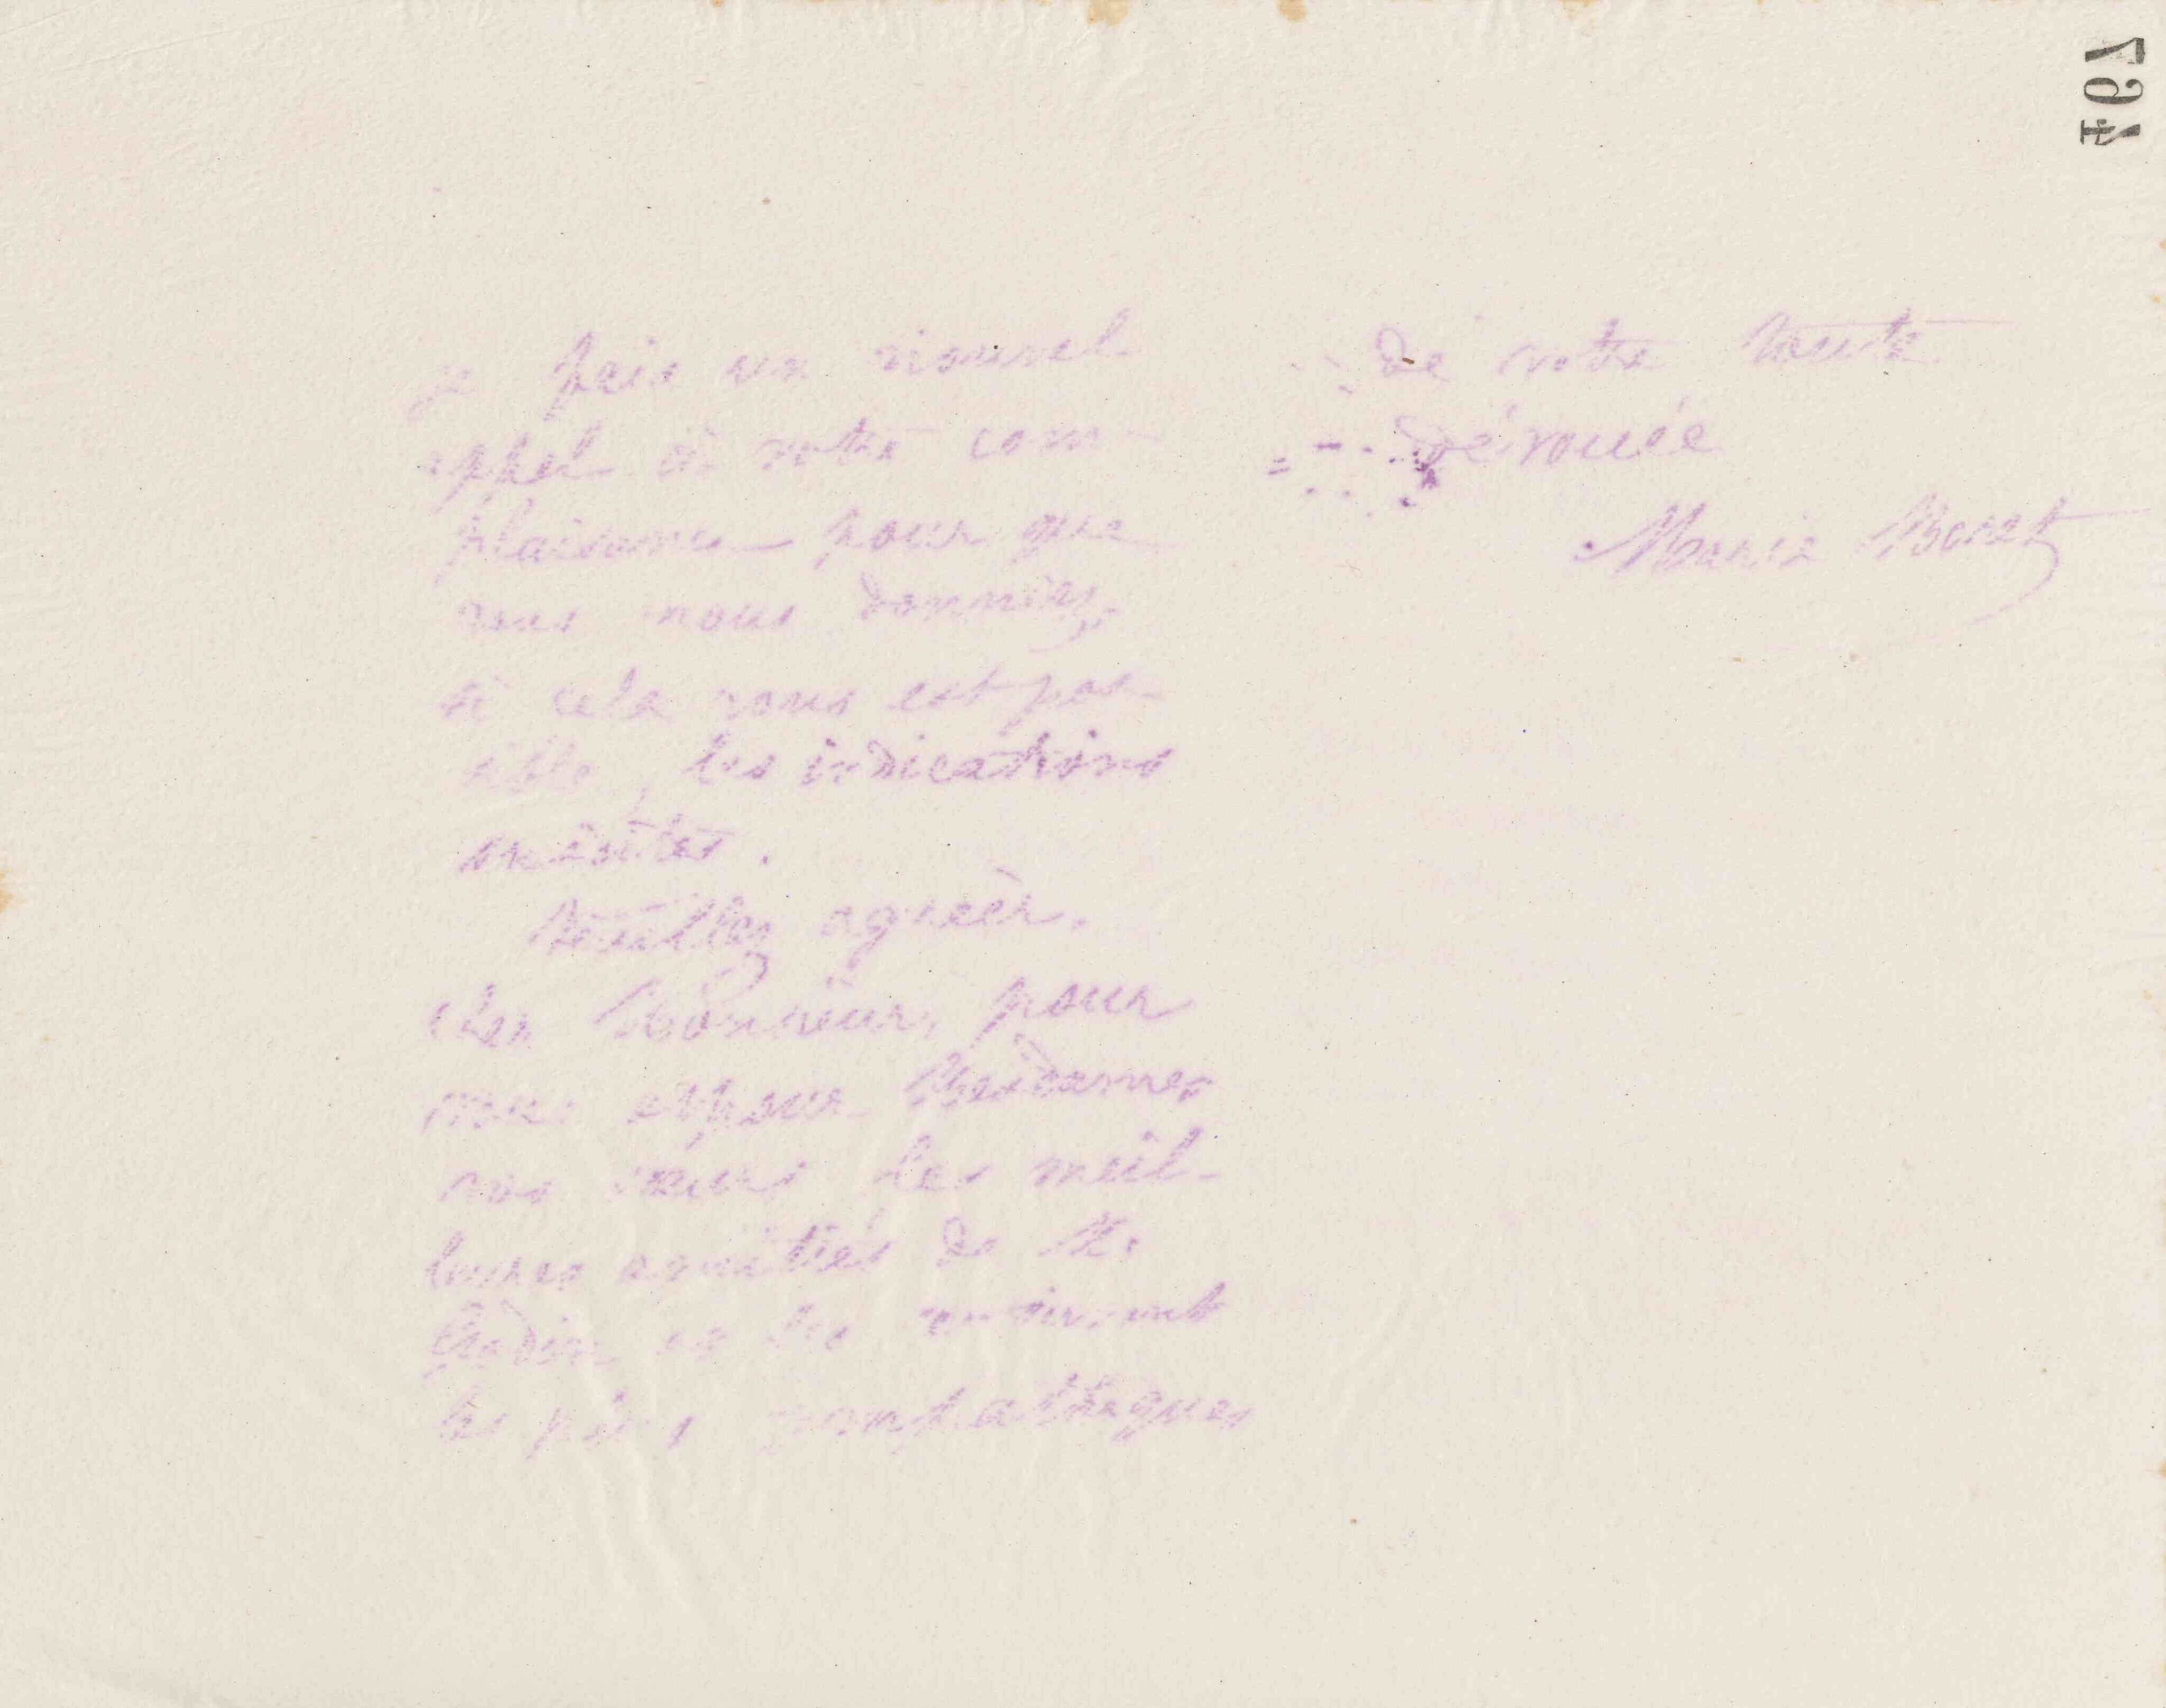 je fais un nouvel
appel à votre com-
plaisance pour que
vous nous donniez,
si cela vous est pos-
sible, les indications
Veuillez agréer,
cher Monsieur, pour
vous et pour Mesdames
vos sœurs les meil-
leures amitiés de M.
Godin, et les
les plus sympathiques
de votre toute
dévouée
Marie Moret
497